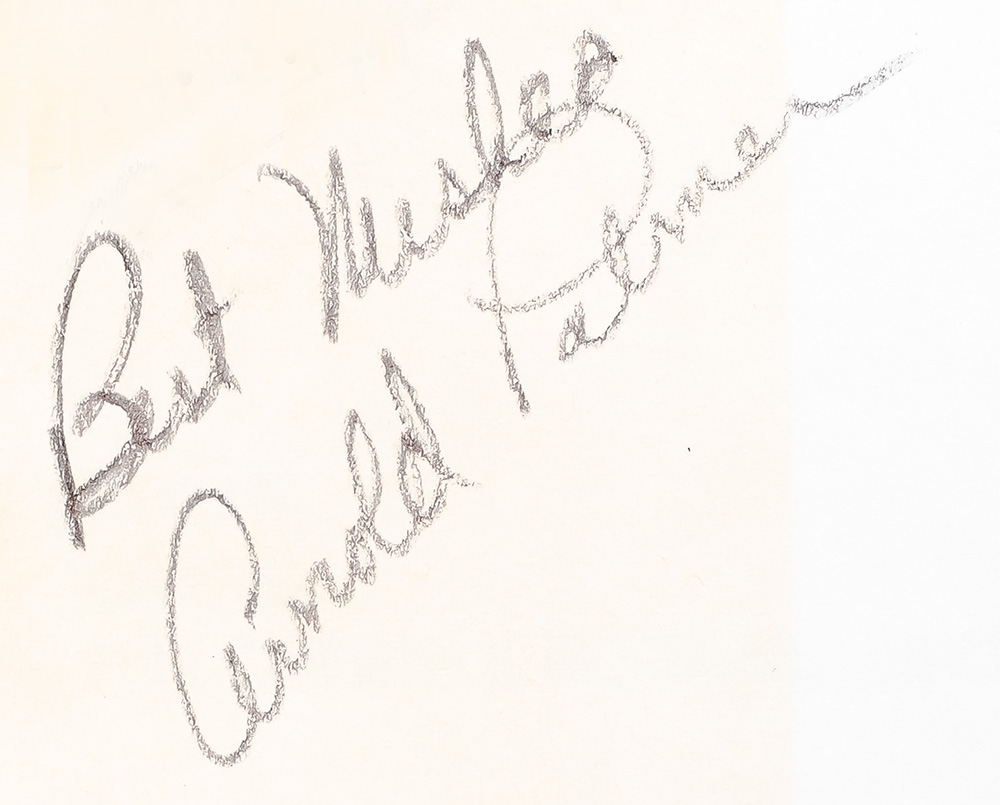 Best Wishes
Arnold Palmer